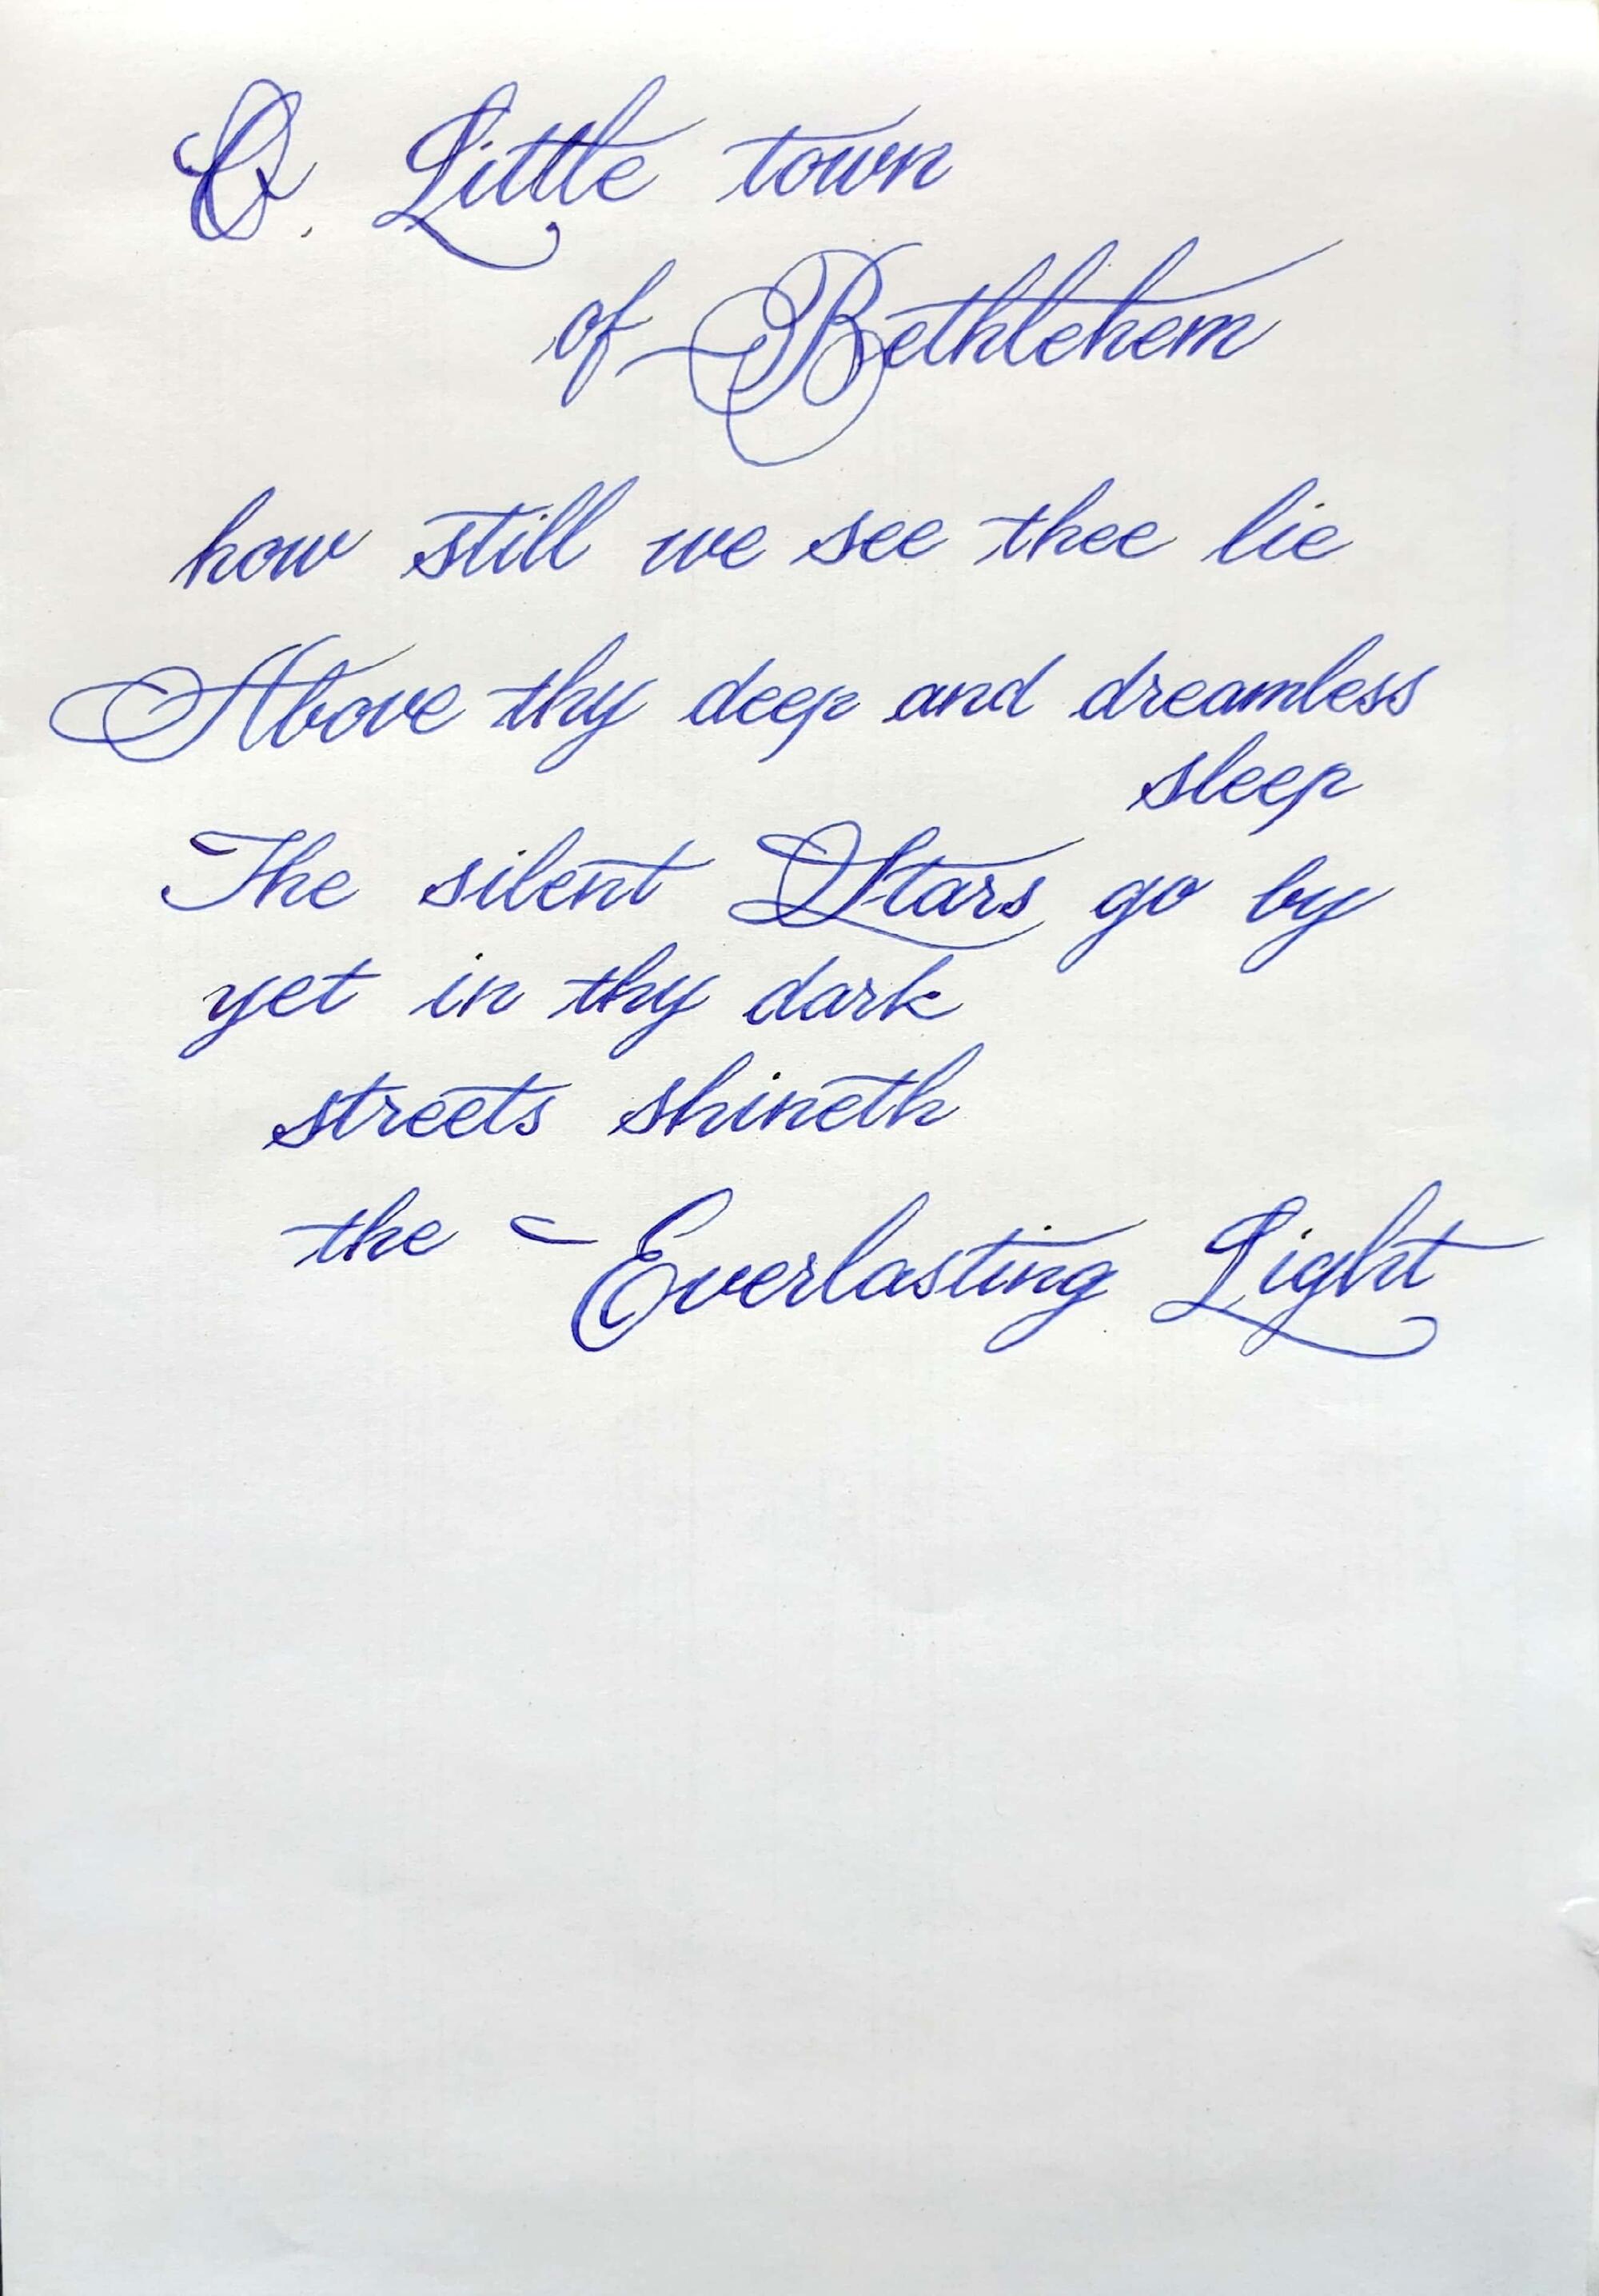 O. Little town
of Bethlehem
how still we see thee lie
Above thy deep and dreamless
sleep
The silent Stars go by
yet in thy dark
streets shineth
the Everlasting Light